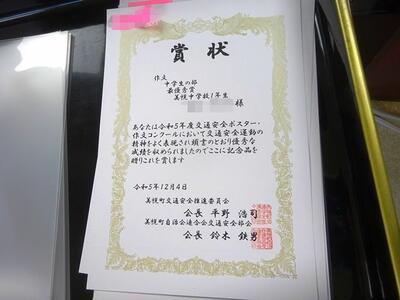 賞状
作文
中学生の部
最優秀賞
美幌中学校1年生
様
あなたは令和5年度交通安全ポスター・
作文コンクールにおいて交通安全運動の
精神をよく表現され頭書のとおり優秀な
成績を収められましたのでここに記念品を
贈りこれを賞します
令和5年12月4日
美幌町交通安全推進委員会
会長 平野 浩司
美幌町自治会連合会交通安全部会
会長 鈴木 鉄男